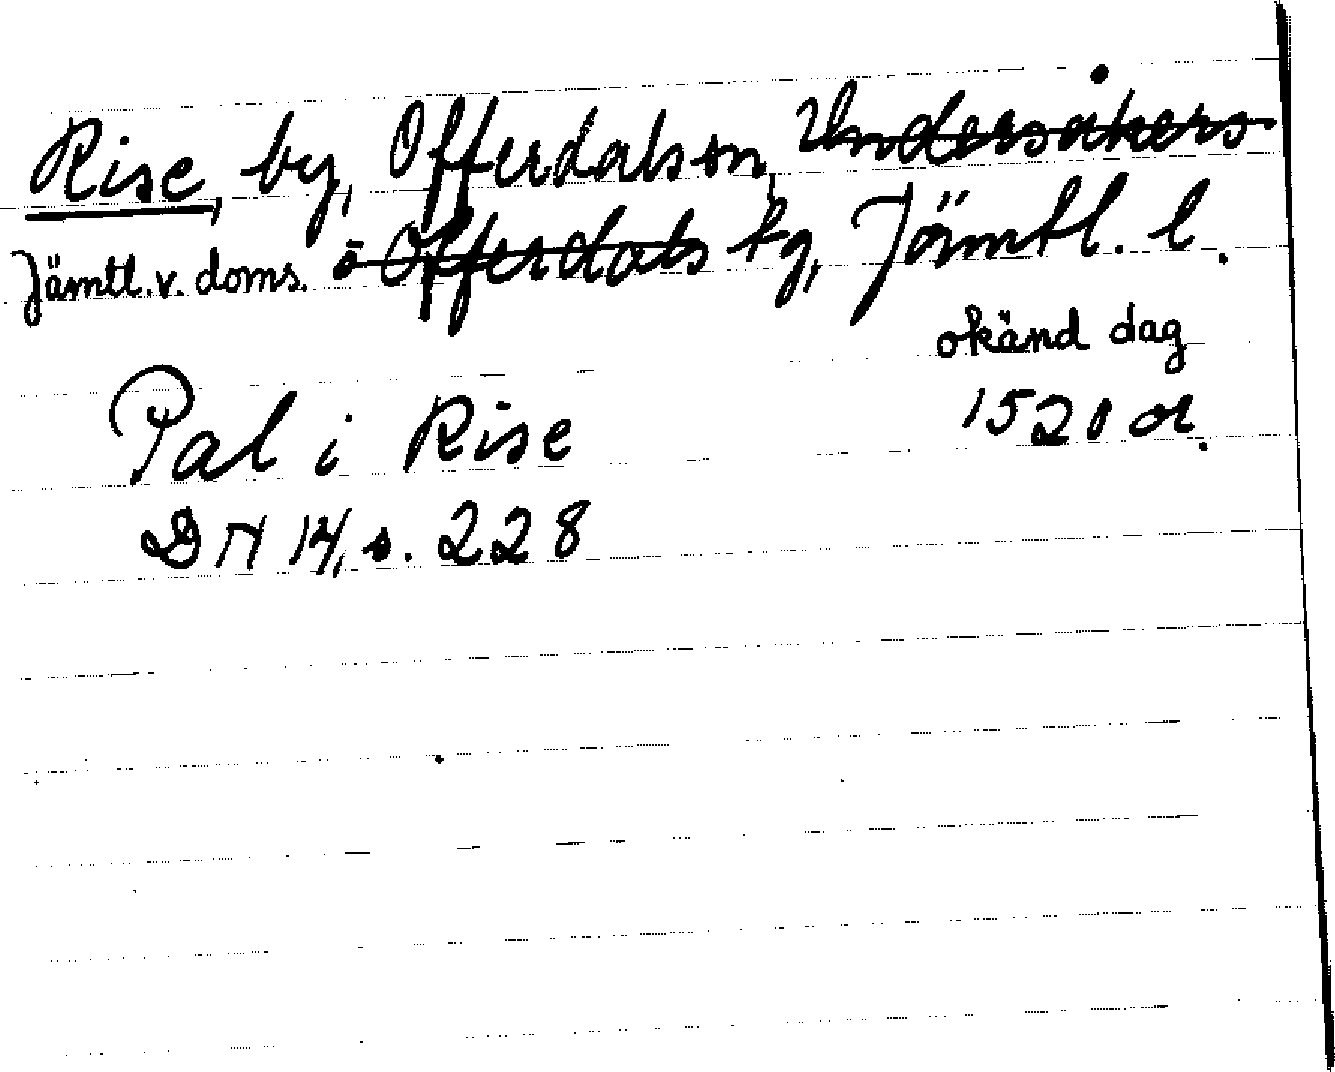 Rise, by, Offerdals sn, Undersåkers
Jämtl. v. doms. o Offerdals tg, Jämtl. l.
okänd dag
Pal i Rise 1520 or.
DN 14, s. 228